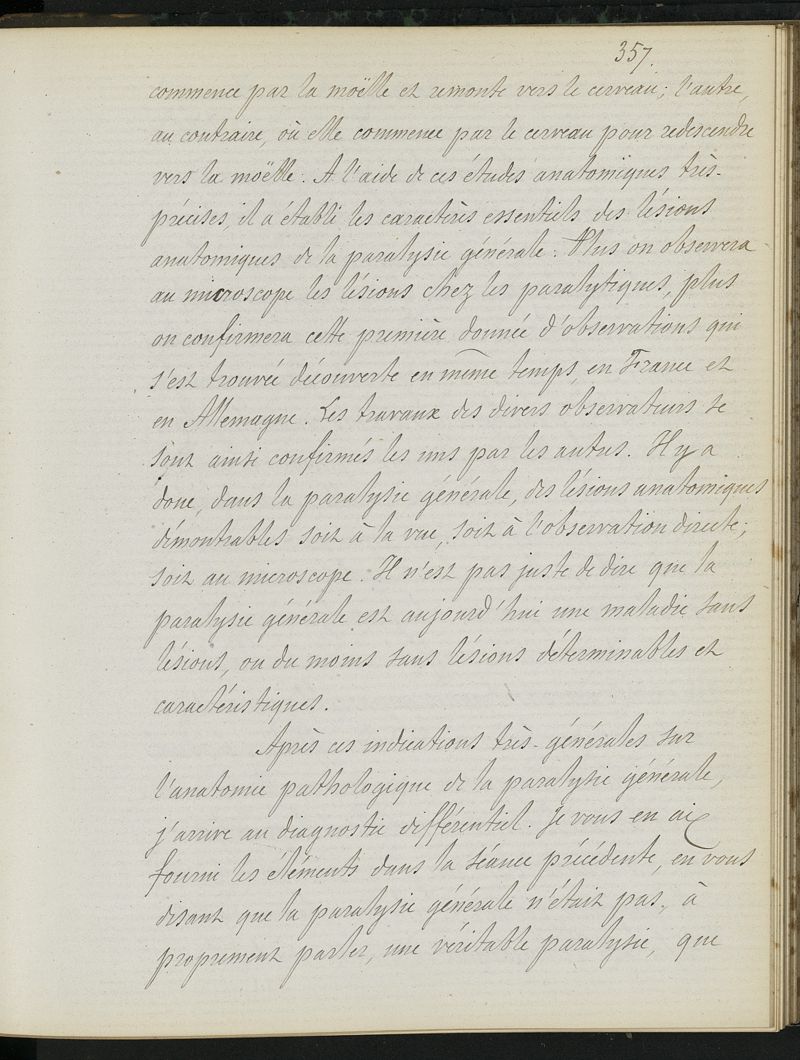 357.
commence par la moëlle et remonte vers le cerveau; l'autre,
au contraire, où elle commence par le cerveau pour redescendre
vers la moëlle. A l'aide de ces études anatomiques très-
précises, il a établi les caractères essentiels des lésions
anatomiques de la paralysie générale. Plus on observera
au microscope les lésions chez les paralytiques, plus
on confirmera cette première donnée d'observations qui
s'est trouvée découverte en même temps, en France et
en Allemagne. Les travaux des divers observateurs se
sont ainsi confirmés les uns par les autres. Il y a
donc, dans la paralysie générale, des lésions anatomiques
démontrables soit à la vue, soit à l'observation directe;
soit au microscope. Il n'est pas juste de dire que la
paralysie générale est aujourd'hui une maladie sans
lésions, ou du moins sans lésions déterminables et
caractéristiques.
Après ces indications très-générales sur
l'anatomie pathologique de la paralysie générale,
j'arrive au diagnostic différentiel. Je vous en ai
fourni les éléments dans la séance précédente, en vous
disant que la paralysie générale n'était pas, à
proprement parler, une véritable paralysie, que